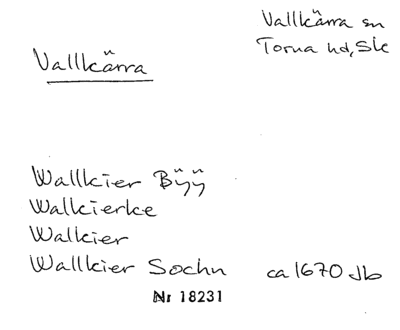 Vallkärra sn
Torna hd, Ske
Vallkärra
Wallkier Bÿÿ
Walkierke
Walkier
Wallkier Sochn ca 1670 Jb
Nr 18231